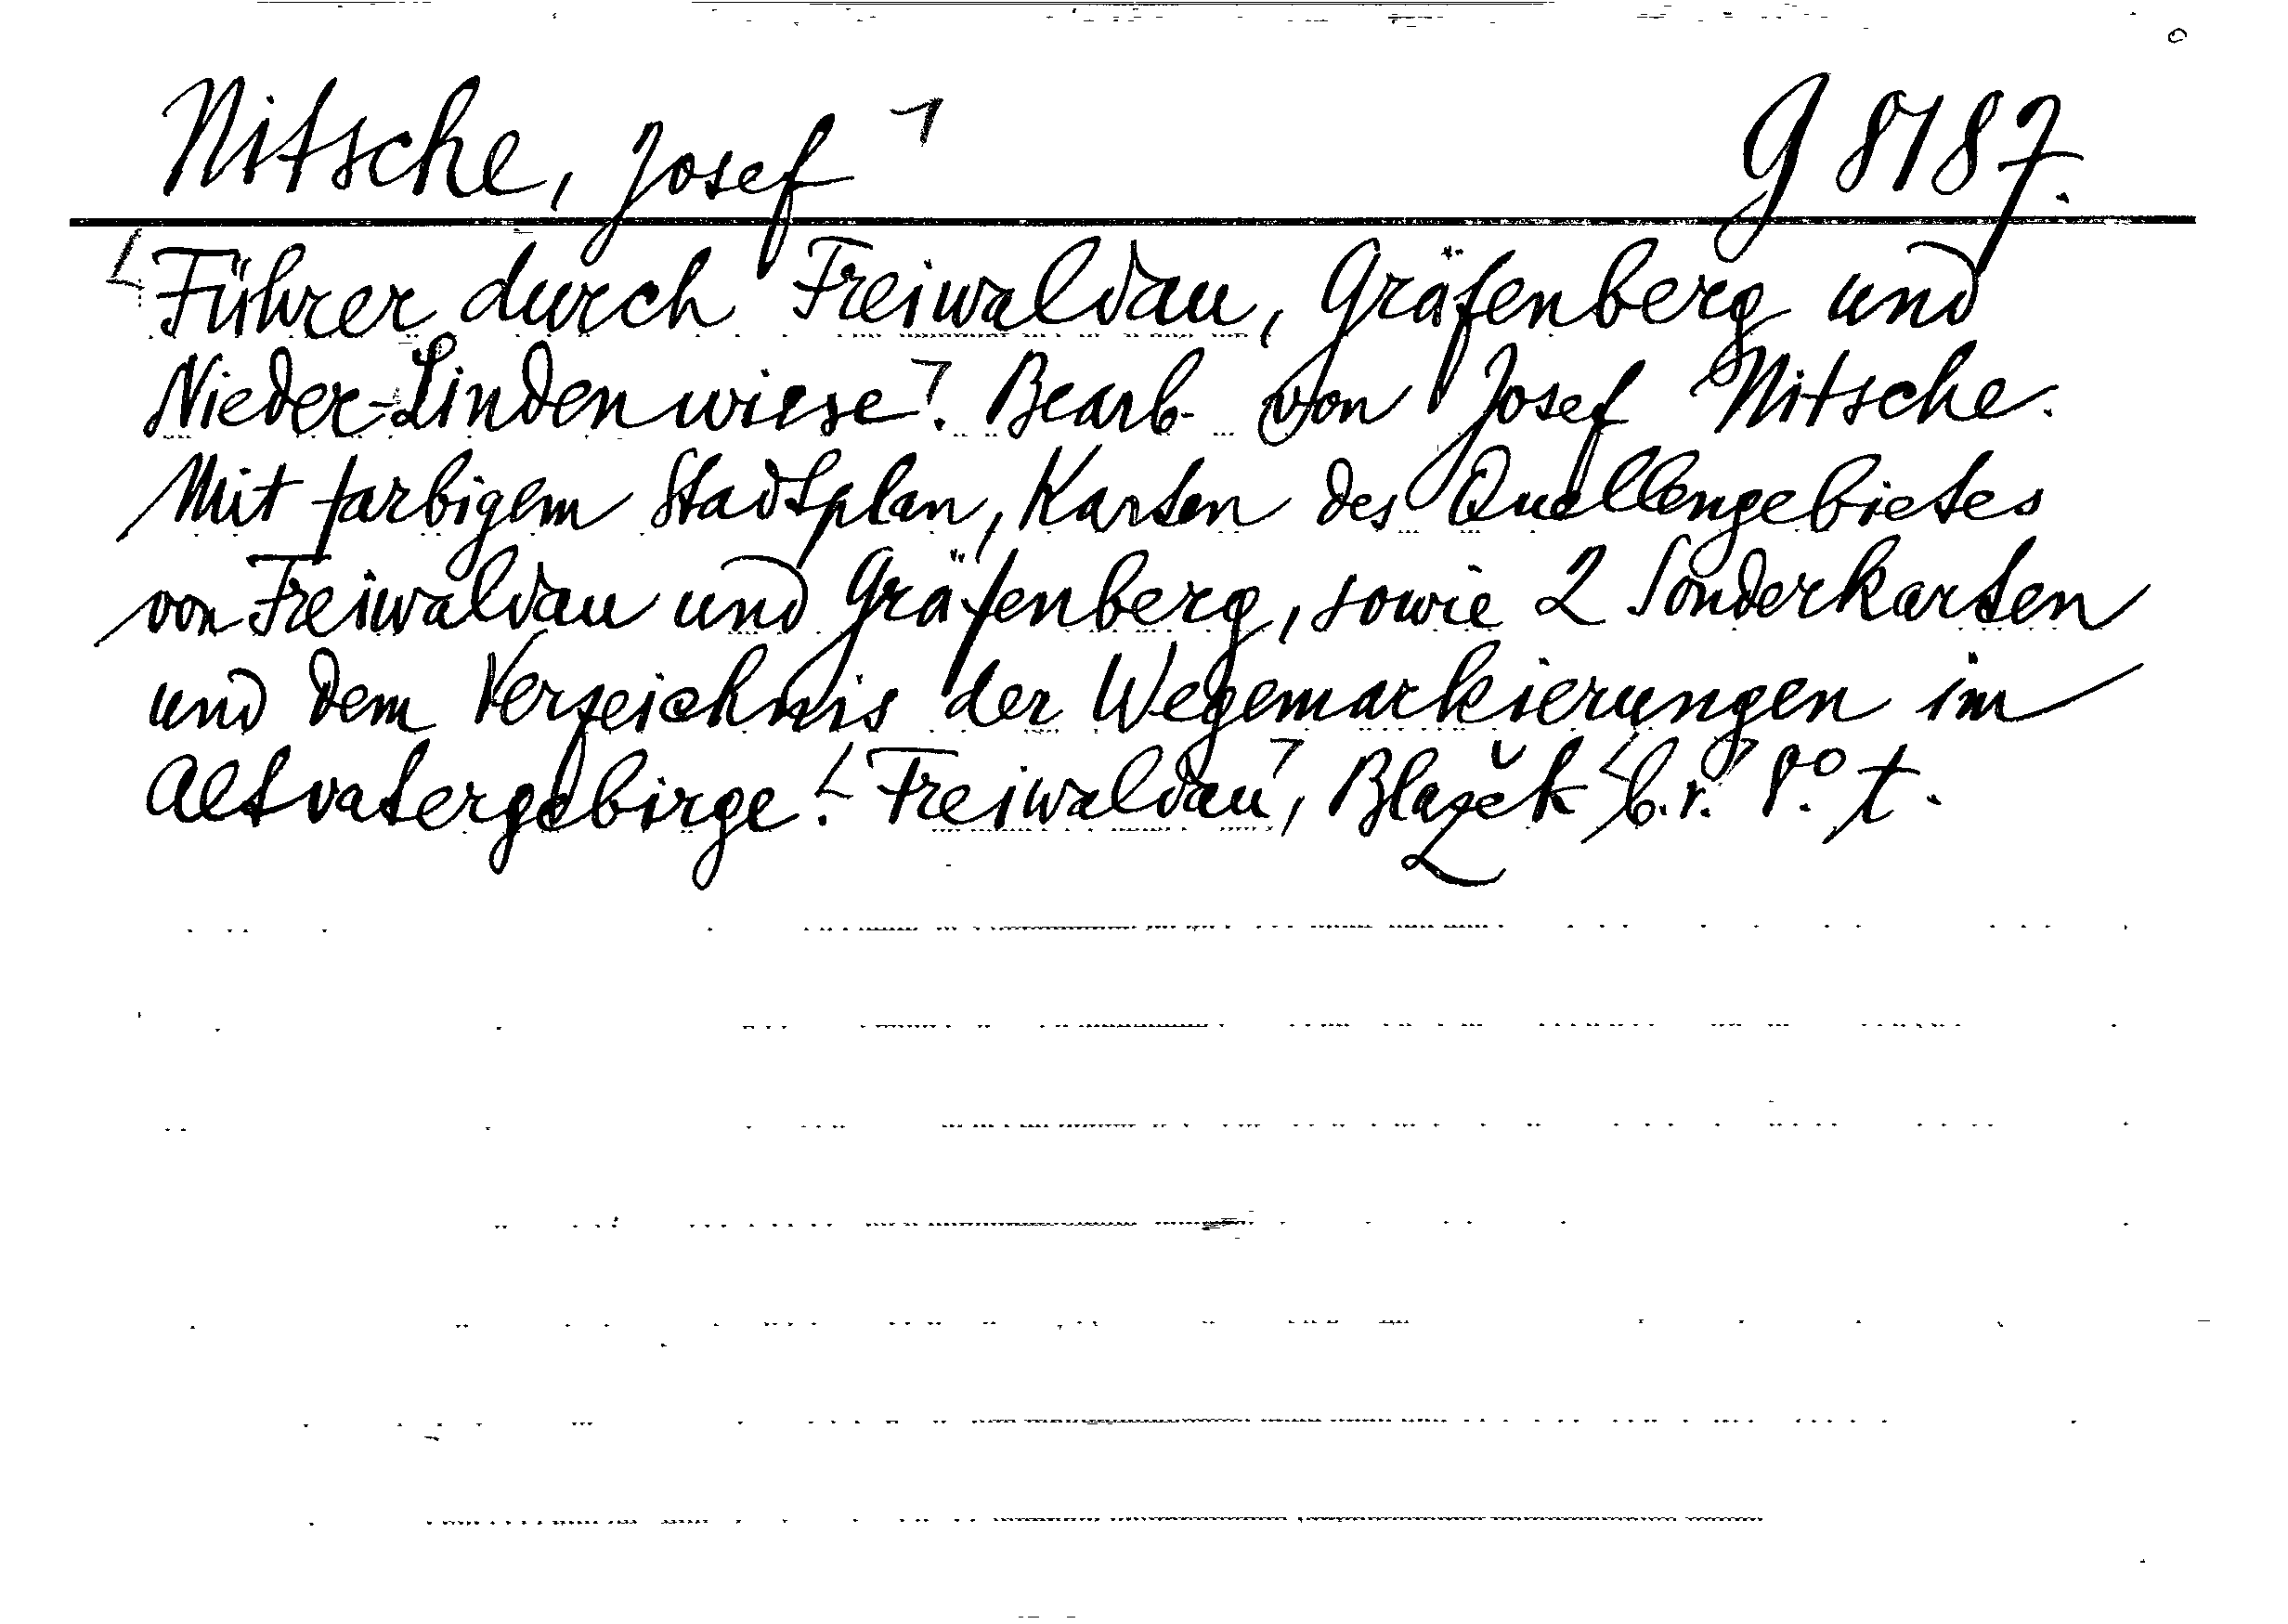 Nitsche, Josef ⌝ G 8187.
⌊Führer durch Freiwaldau, Gräfenberg und
Nieder-Lindenwiese⌝. Bearb. von Josef Nitsche.
Mit farbigem Stadtplan, Karten des Quellengebietes
von Freiwaldau und Gräfenberg, sowie 2 Sonderkarten
und dem Verzeichnis der Wegemarkierungen im
Altvatergebirge. ⌊Freiwaldau⌝, Blažek ⌊b.r.⌝ 8.° t.